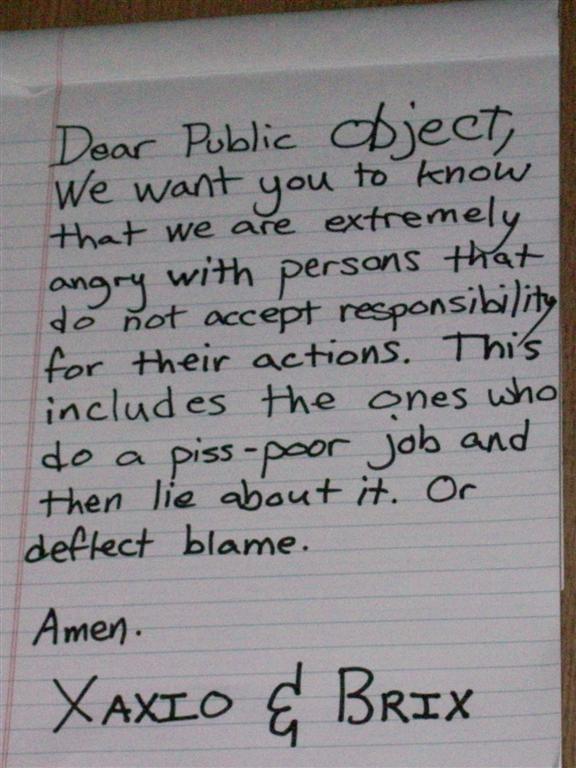 Dear Public Object,
We want you to know
that we are extremely
angry with persons that
do not accept responsibility
for their actions. This
includes the ones who
do a piss-poor job and
then lie about it. Or
deflect blame.
Amen.
XAXIO & BRIX